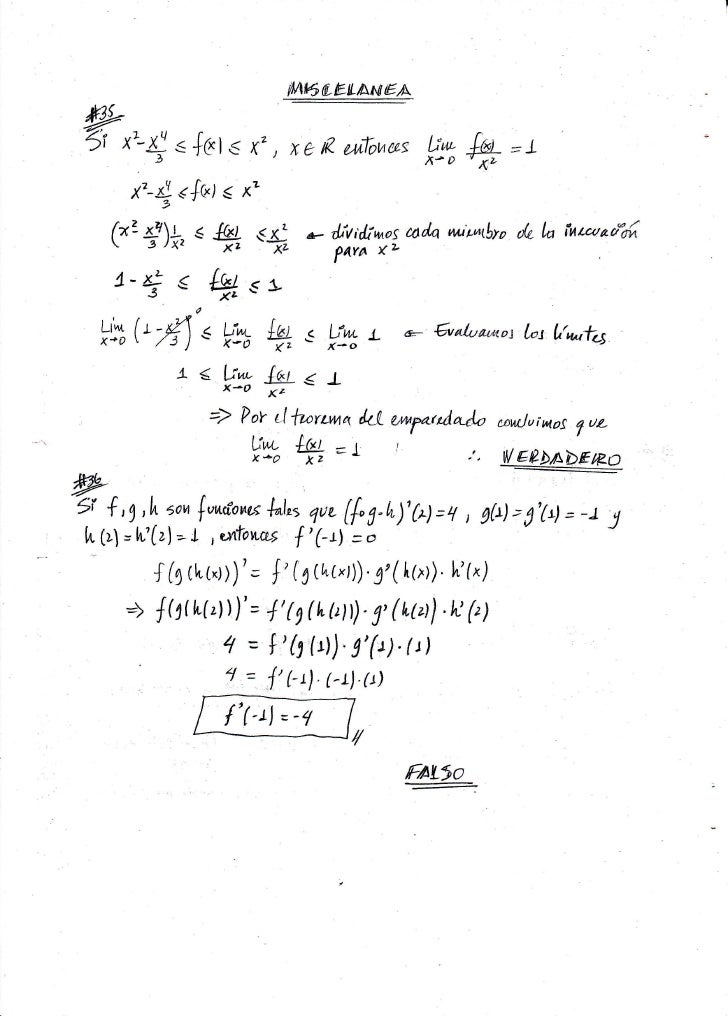 MISCELANEA
#35
Si x²-x⁴/3 ≤ f(x) ≤ x², x ∈ ℝ entonces Lim x→0 f(x)/x² = 1
x²-x⁴/3 ≤ f(x) ≤ x²
(x²-x⁴/3)1/x² ≤ f(x)/x² ≤ x²/x² ← dividimos cada miembro de la inecuación
para x²
1 - x²/3 ≤ f(x)/x² ≤ 1
Lim x→0 (1-x²/3)⁰ ≤ Lim x→0 f(x)/x² ≤ Lim x→0 1 ← Evaluamos los límites
1 ≤ Lim x→0 f(x)/x² ≤ 1
=> Por el teorema del emparedado concluimos que
Lim x→0 f(x)/x² = 1 ∴ VERDADERO
#36
Si f,g,h son funciones tales que (fog-h)'(2)=4, g(1)=g'(1)=-1 y
h(2)=h'(2)=1, entonces f'(-1)=0
f(g(h(x)))' = f'(g(h(x)))·g'(h(x))·h'(x)
=> f(g(h(2)))' = f'(g(h(2)))·g'(h(2))·h'(2)
4 = f'(g(1))·g'(1)·(1)
4 = f'(-1)·(-1)·(1)
f'(-1) = -4 //
FALSO